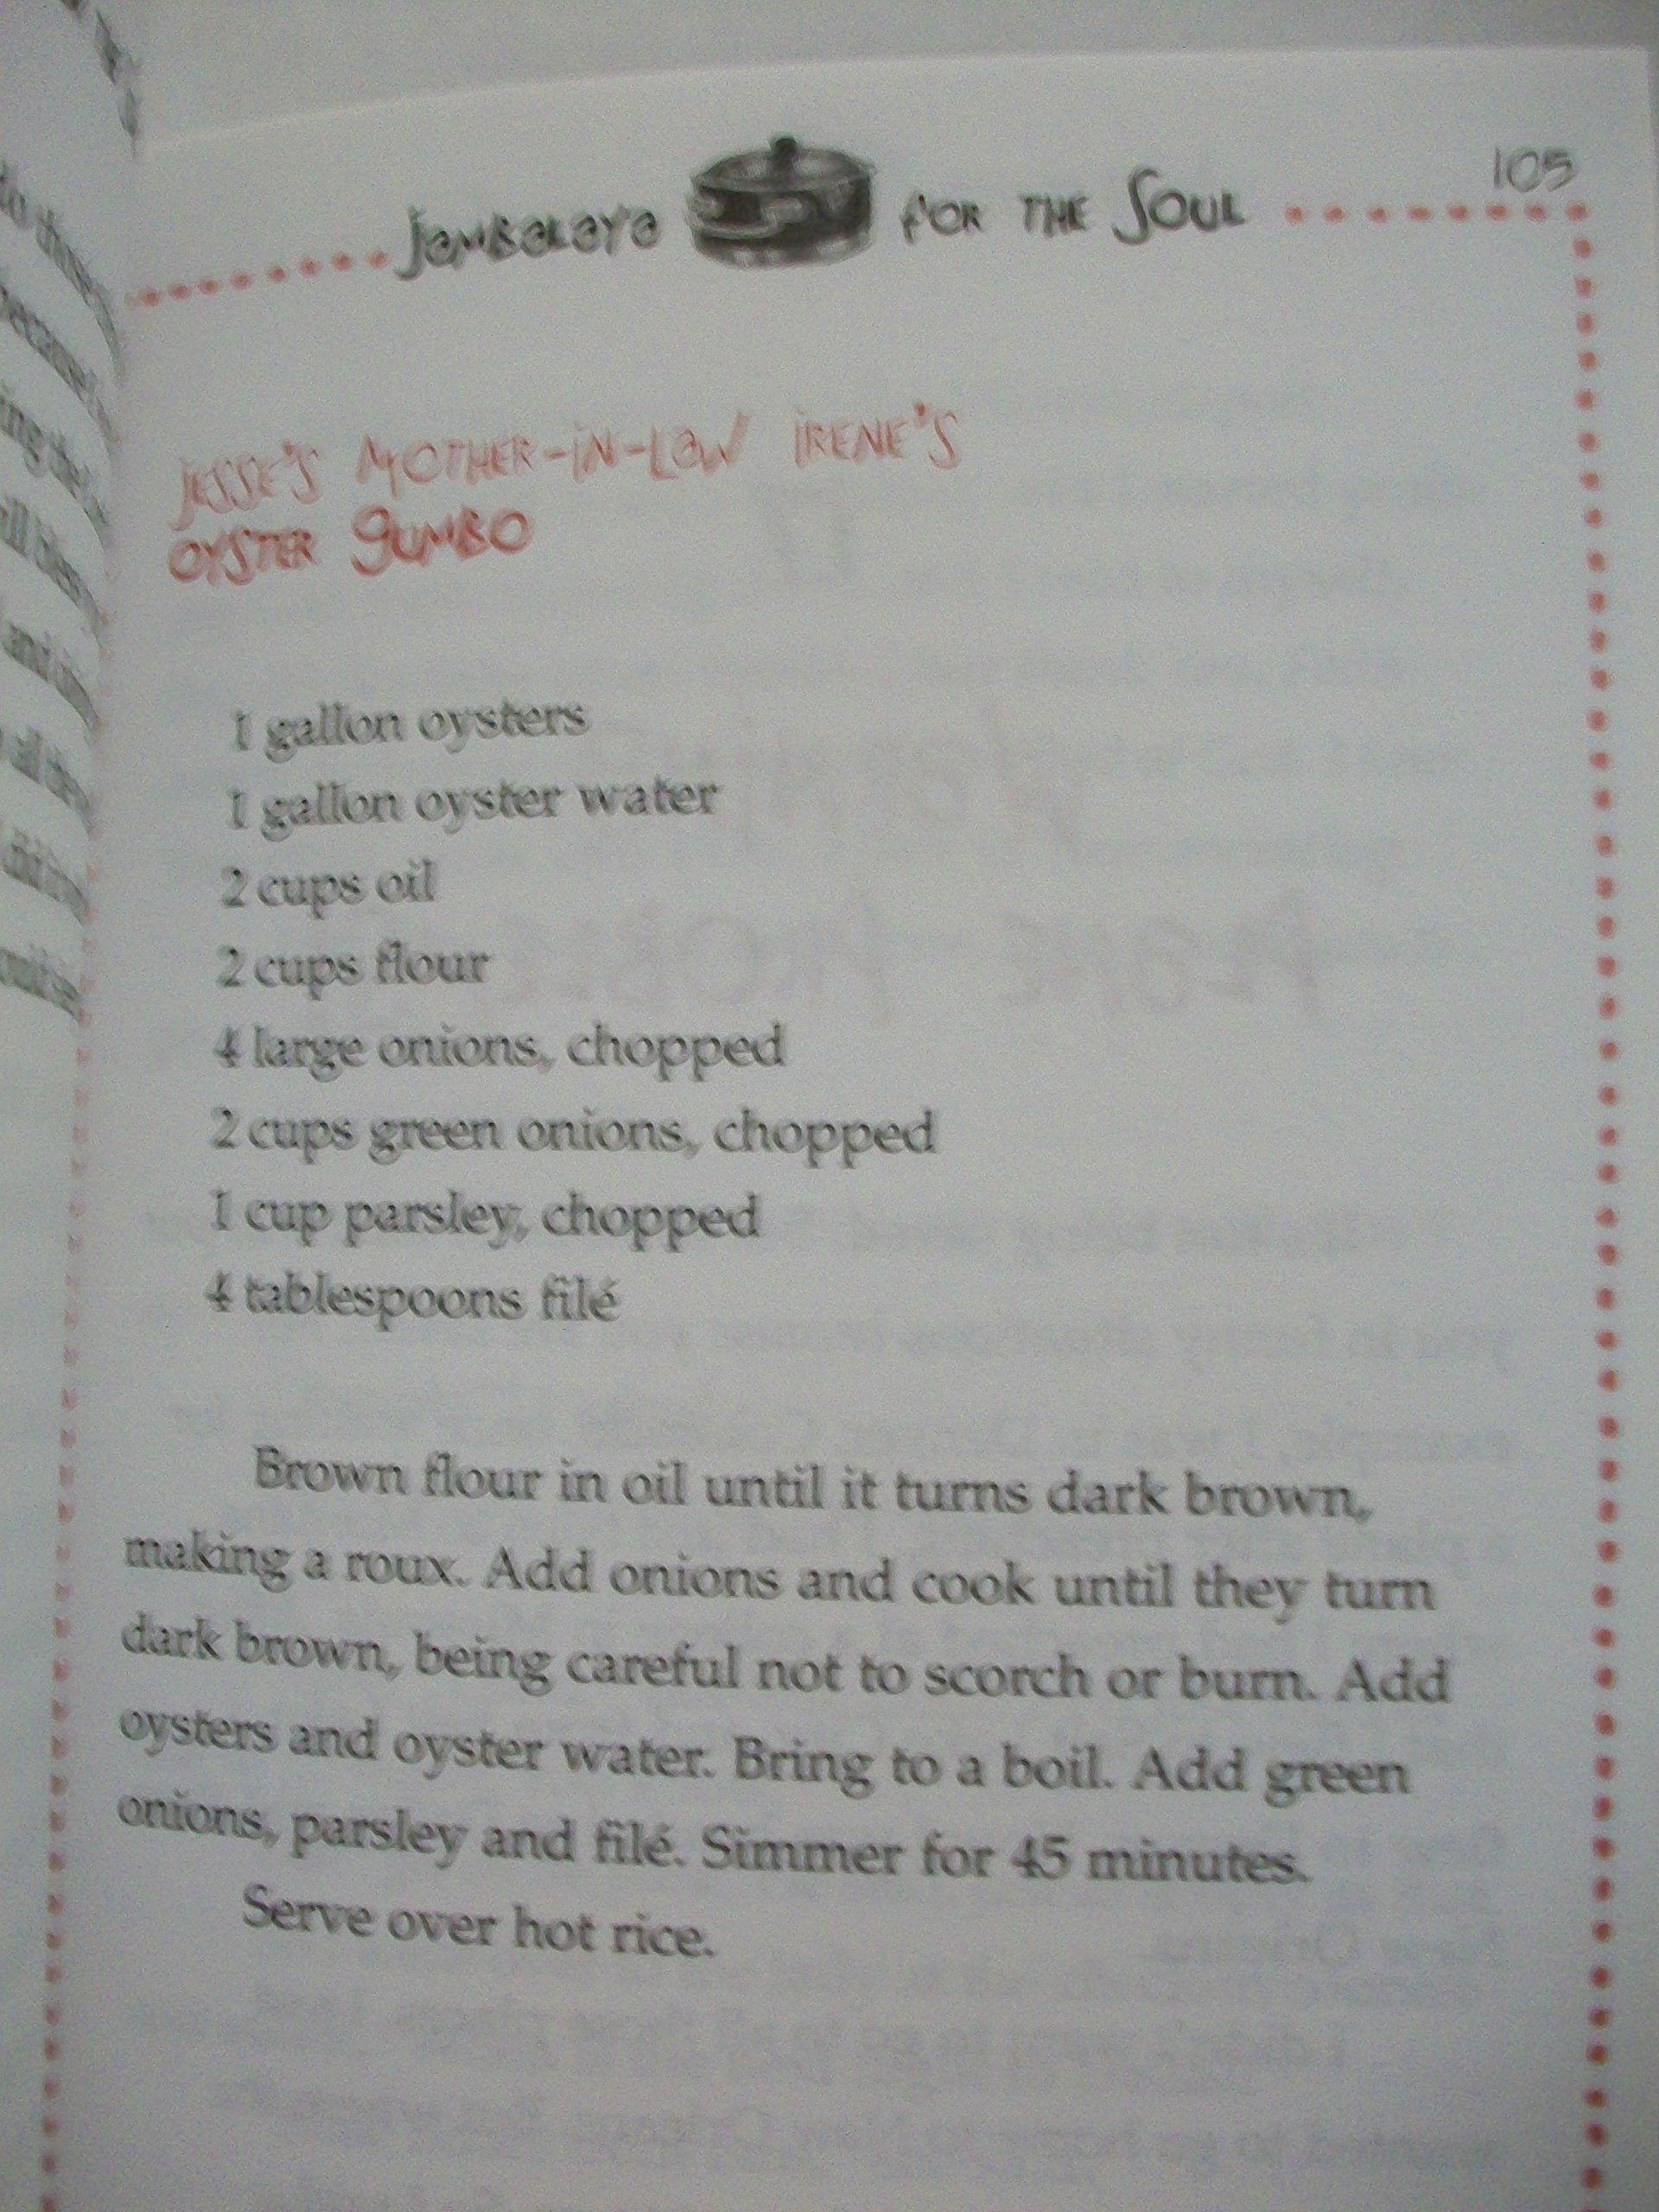 Jambalaya for the Soul
105
Jesse's Mother-in-Law Irene's
Oyster Gumbo
1 gallon oysters
1 gallon oyster water
2 cups oil
2 cups flour
4 large onions, chopped
2 cups green onions, chopped
1 cup parsley, chopped
4 tablespoons filé
Brown flour in oil until it turns dark brown,
making a roux. Add onions and cook until they turn
dark brown, being careful not to scorch or burn. Add
oysters and oyster water. Bring to a boil. Add green
onions, parsley and filé. Simmer for 45 minutes.
Serve over hot rice.